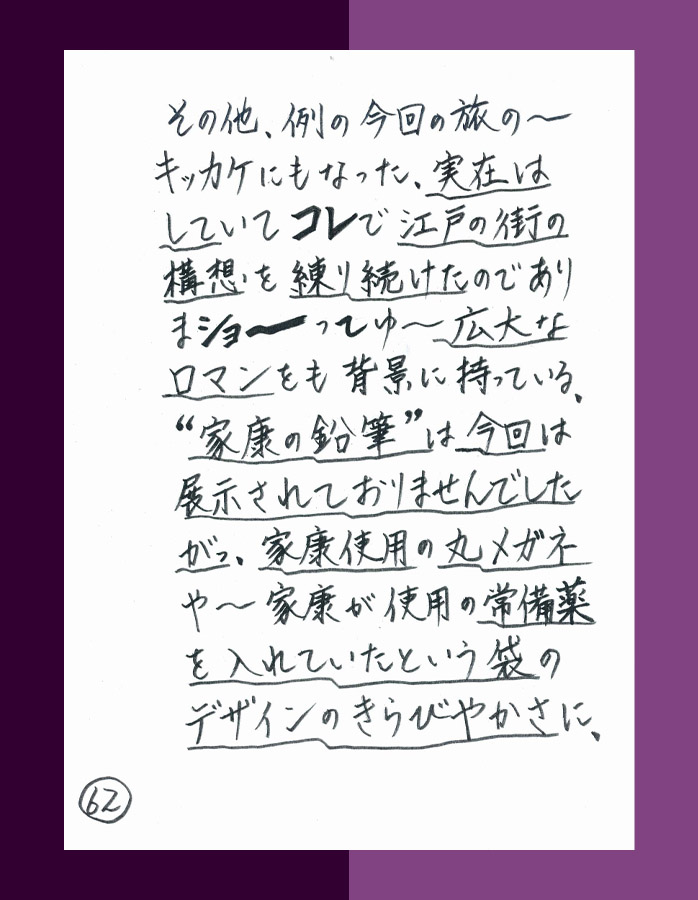 その他、例の今回の旅の〜
キッカケにもなった、実在は
していてコレで江戸の街の
構想を練り続けたのであり
まショーってゆ〜広大な
ロマンをも背景に持っている、
“家康の鉛筆”は今回は
展示されておりませんでした
がっ、家康使用の丸メガネ
や〜家康が使用の常備薬
を入れていたという袋の
デザインのきらびやかさに、
62